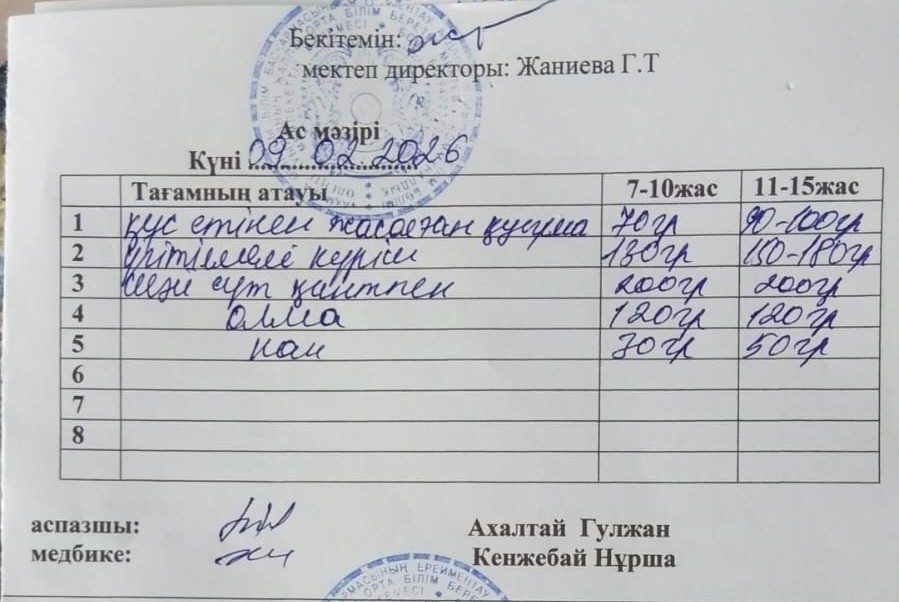 Бекітемін:
мектеп директоры: Жаниева Г.Т
Ас мәзірі
Күні 09.02.2026
Тағамның атауы 7-10жас 11-15жас
1 құс етінен жасалған қуырма 70гр 90-100гр
2 үгітілмелі күріш 130гр 150-180гр
3 сүт қантпен 200гр 200гр
4 алма 120гр 120гр
5 нан 30гр 50гр
6
7
8
аспазшы: Ахалтай Гулжан
медбике: Кенжебай Нұрша
ЕРЕЙМЕНТАУ
ОРТА БІЛІМ